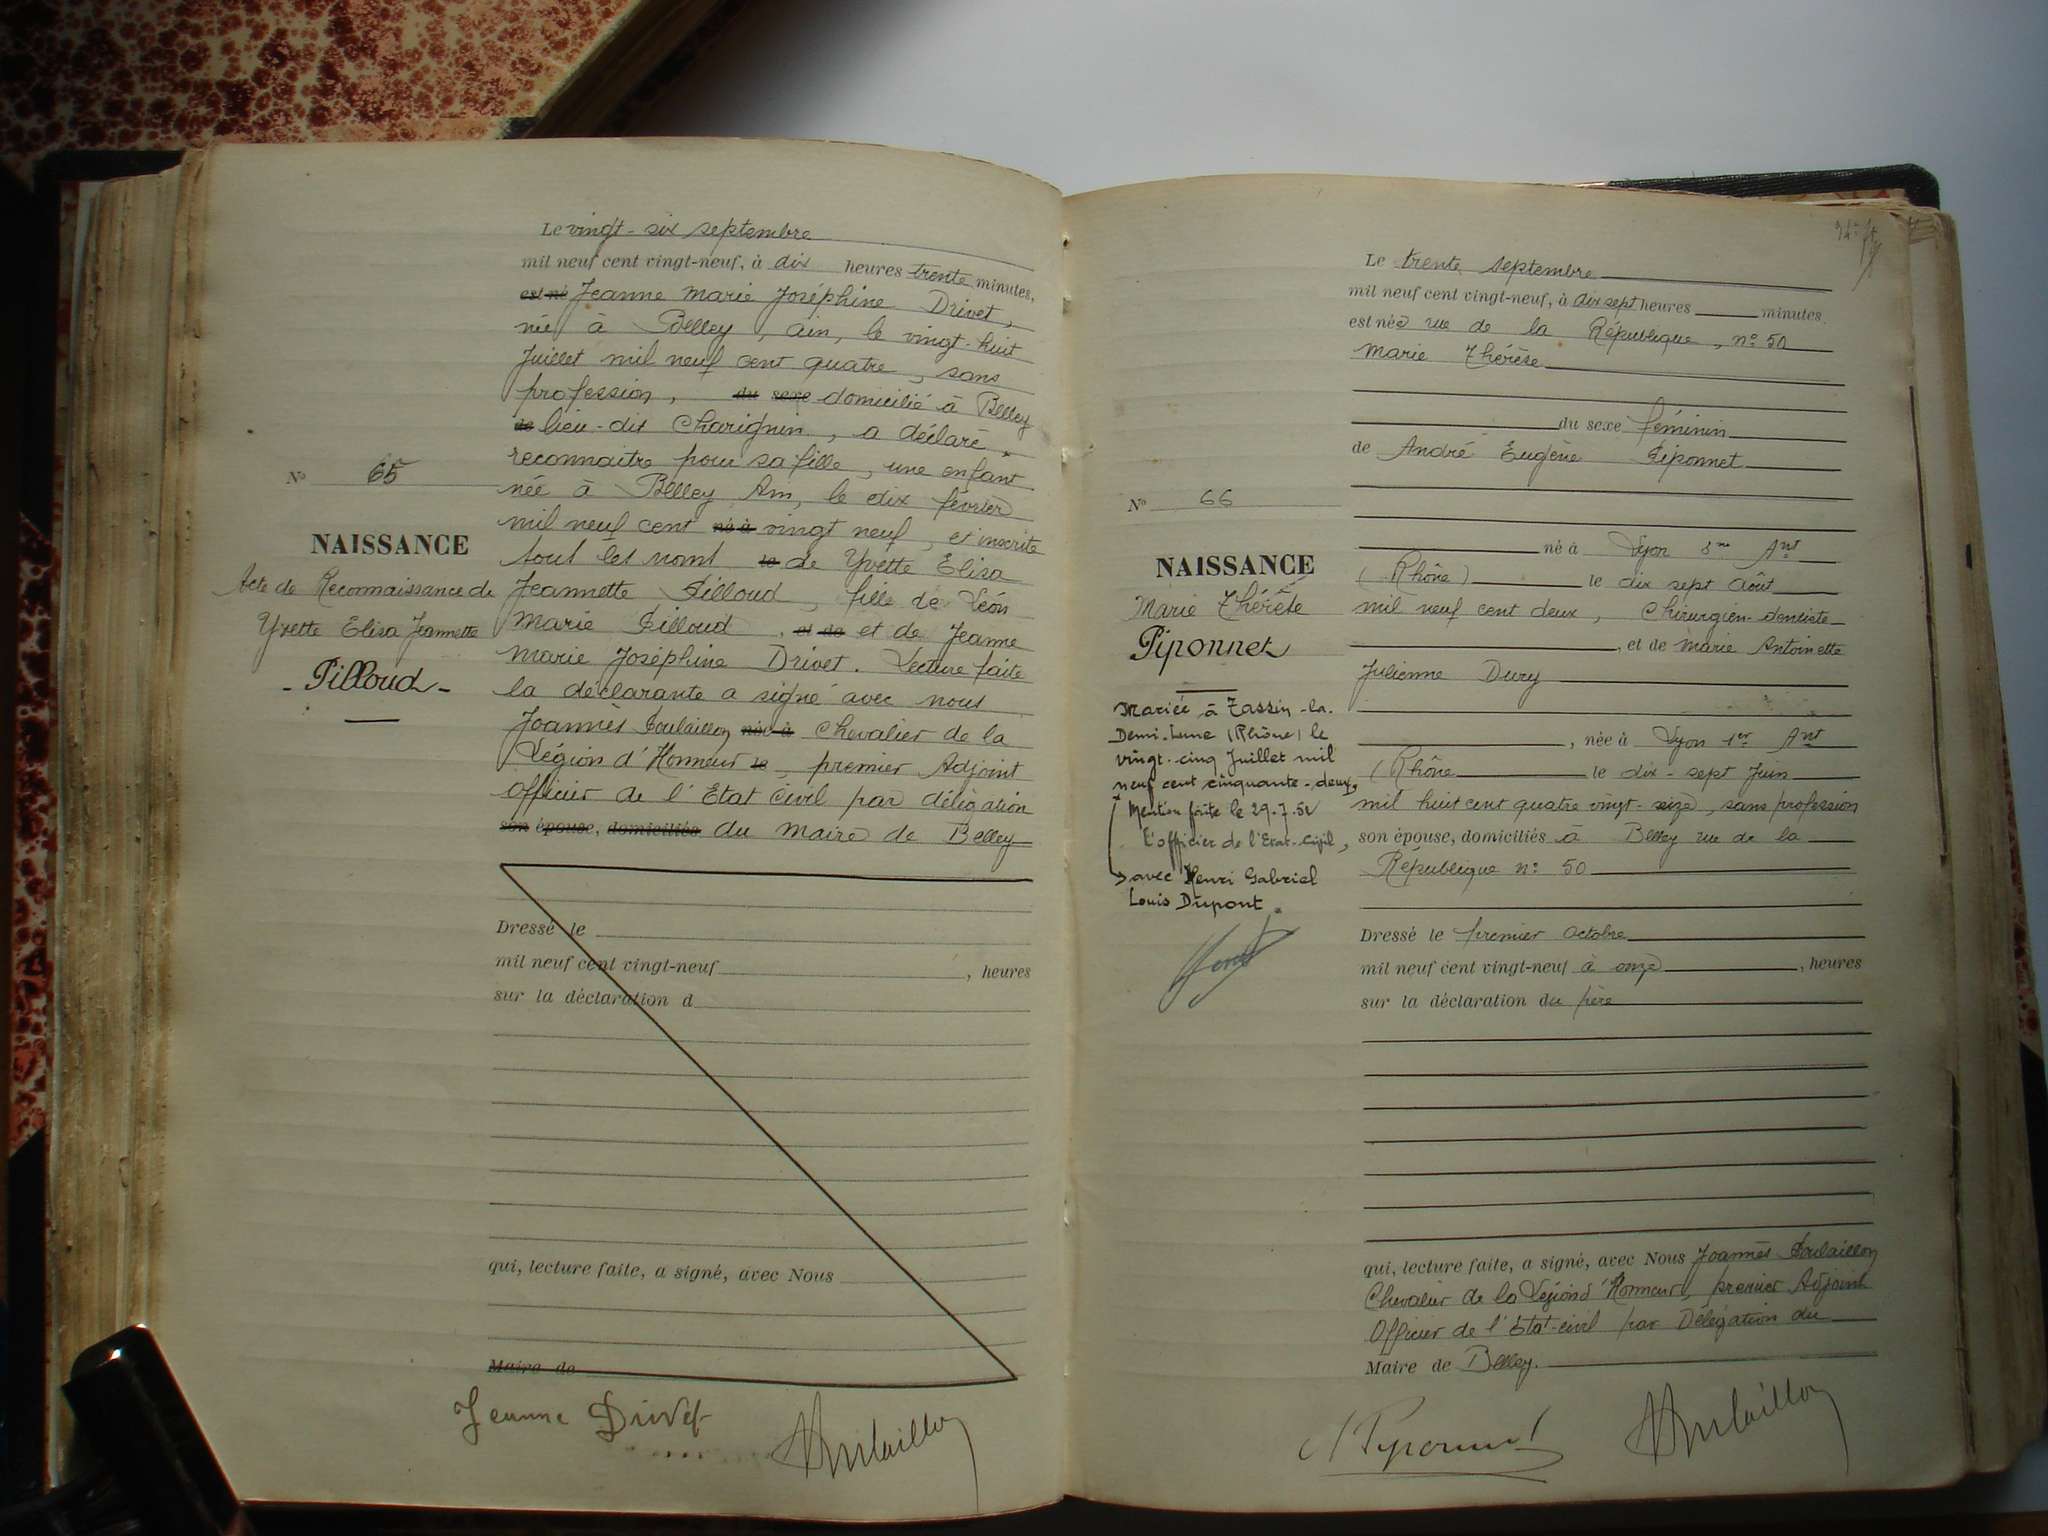 Le vingt-six septembre
mil neuf cent vingt-neuf, à dix heures trente minutes,
est né Jeanne Marie Joséphine Drivet,
née à Belley, Ain, le vingt-huit
Juillet mil neuf cent quatre, sans
profession, du sexe domicilié à Belley
de lieu-dit Charignin, a déclaré
reconnaitre pour sa fille, une enfant
née à Belley Ain, le dix février
mil neuf cent né à vingt neuf, et inscrite
sous les noms le de Yvette Elisa
Jeannette Pilloud, fille de Léon
Marie Pilloud, et de et de Jeanne
Marie Joséphine Drivet. Lecture faite
la déclarante a signé avec nous
Joannès Poulaillon née à Chevalier de la
Légion d'Honneur le, premier Adjoint
Officier de l'Etat Civil par délégation
son épouse, domiciliés du Maire de Belley
Nº 65
NAISSANCE
Acte de Reconnaissance de
Yvette Elisa Jeannette
- Pilloud -
Dressé le
mil neuf cent vingt-neuf , heures
sur la déclaration d
qui, lecture faite, a signé, avec Nous
Maire de
Jeanne Drivet
Poulaillon
Le trente septembre
mil neuf cent vingt-neuf, à dix sept heures minutes
est née rue de la République, nº 50
Marie Thérèse
du sexe féminin
de André Eugène Piponnet
né à Lyon Art
(Rhône) le dix sept Août
mil neuf cent deux, Chirurgien-dentiste
, et de Marie Antoinette
Julienne Dury
, née à Lyon 1er Art
(Rhône le dix-sept Juin
mil huit cent quatre vingt-seize, sans profession
son épouse, domiciliés à Belley rue de la
République nº 50
Nº 66
NAISSANCE
Marie Thérèse
Piponnet
Mariée à Tassin-la-
Demi-Lune (Rhône) le
vingt-cinq Juillet mil
neuf cent cinquante-deux,
Mention faite le 29.7.52
L'officier de l'Etat-Civil,
avec Henri Gabriel
Louis Dupont.
Dressé le premier Octobre
mil neuf cent vingt-neuf à onze , heures
sur la déclaration du père
qui, lecture faite, a signé, avec Nous Joannès Poulaillon
Chevalier de la Légion d'Honneur, premier Adjoint
Officier de l'Etat-civil par Délégation du
Maire de Belley.
A Piponnet
Poulaillon